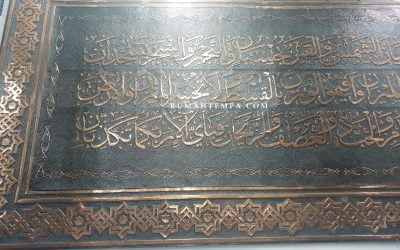 الشمس والقمر بحسبان والنجم والشجر يسجدان
وأقيموا الوزن بالقسط ولا تخسروا الميزان والأرض
RUMAHTEMPA.COM
والحب ذو العصف والريحان فبأي آلاء ربكما تكذبان